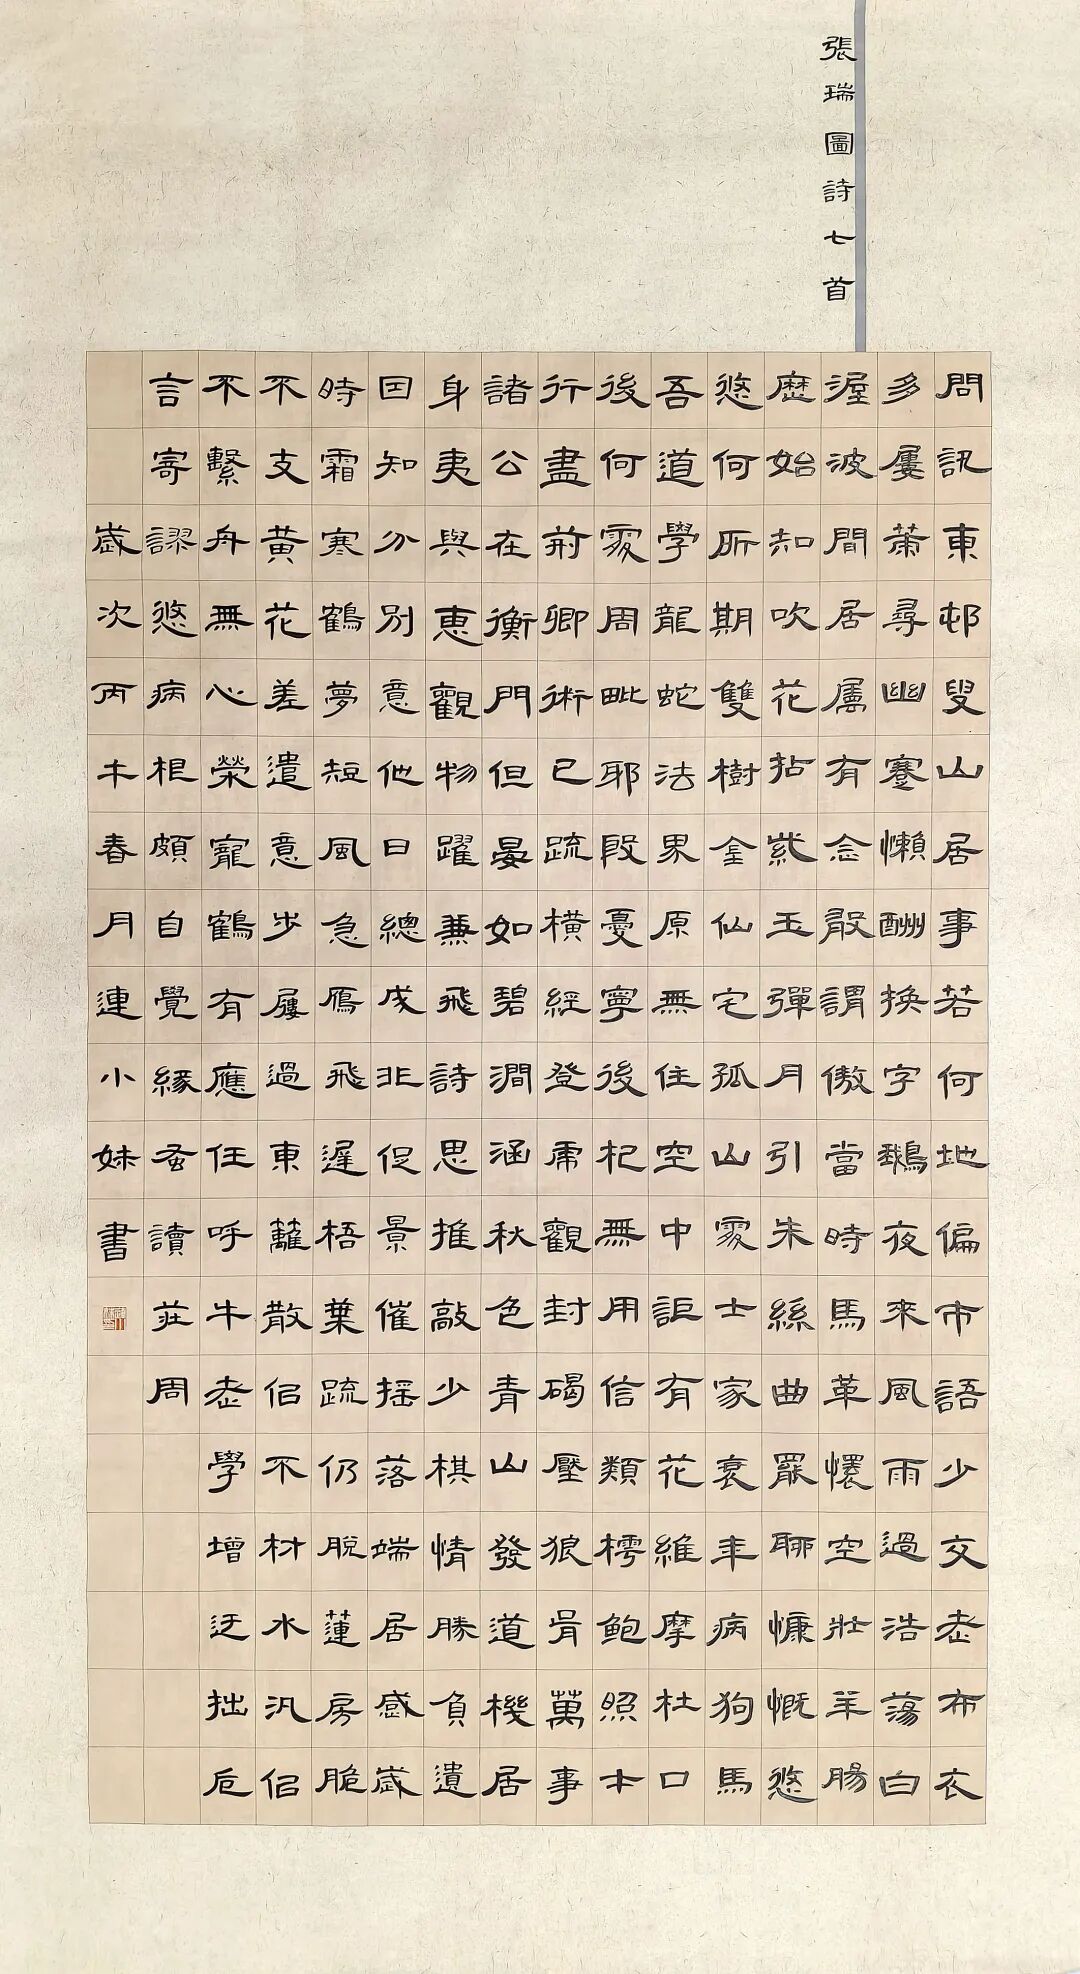 張瑞圖詩七首
問訊東邨叟山居事若何地偏市語少交老布衣
多屢蕭尋幽蹇懶酬換字鵝夜來風雨過浩蕩白
渥波間居属有念敢謂傲當時馬革懷空壯羊腸
歷始知吹花拈紫玉彈月引朱絲曲罷聊慷慨悠
悠何所期雙樹金仙宅孤山處士家衰年病狗馬
吾道學龍蛇法界原無住空中詎有花維摩杜口
後何處周毗耶段憂寧後杞無用信類樗鮑照本
行盡荊卿術已疏橫經登虎觀封碣壓狼胥萬事
諸公在衡門但晏如碧澗涵秋色青山發道機居
身夷與惠觀物躍兼飛詩思推敲少棋情勝負遺
因知分別意他日總成非促景催搖落端居感歲
時霜寒鶴夢短風急雁飛遲梧葉疏仍脫蓮房脆
不支黃花差遣意步屧過東籬散侶不材水汎侶
不繫舟無心榮寵鶴有應任呼牛老學增迂拙卮
言寄謬悠病根頗自覺緣蚤讀莊周
歲次丙午春月連小妹書